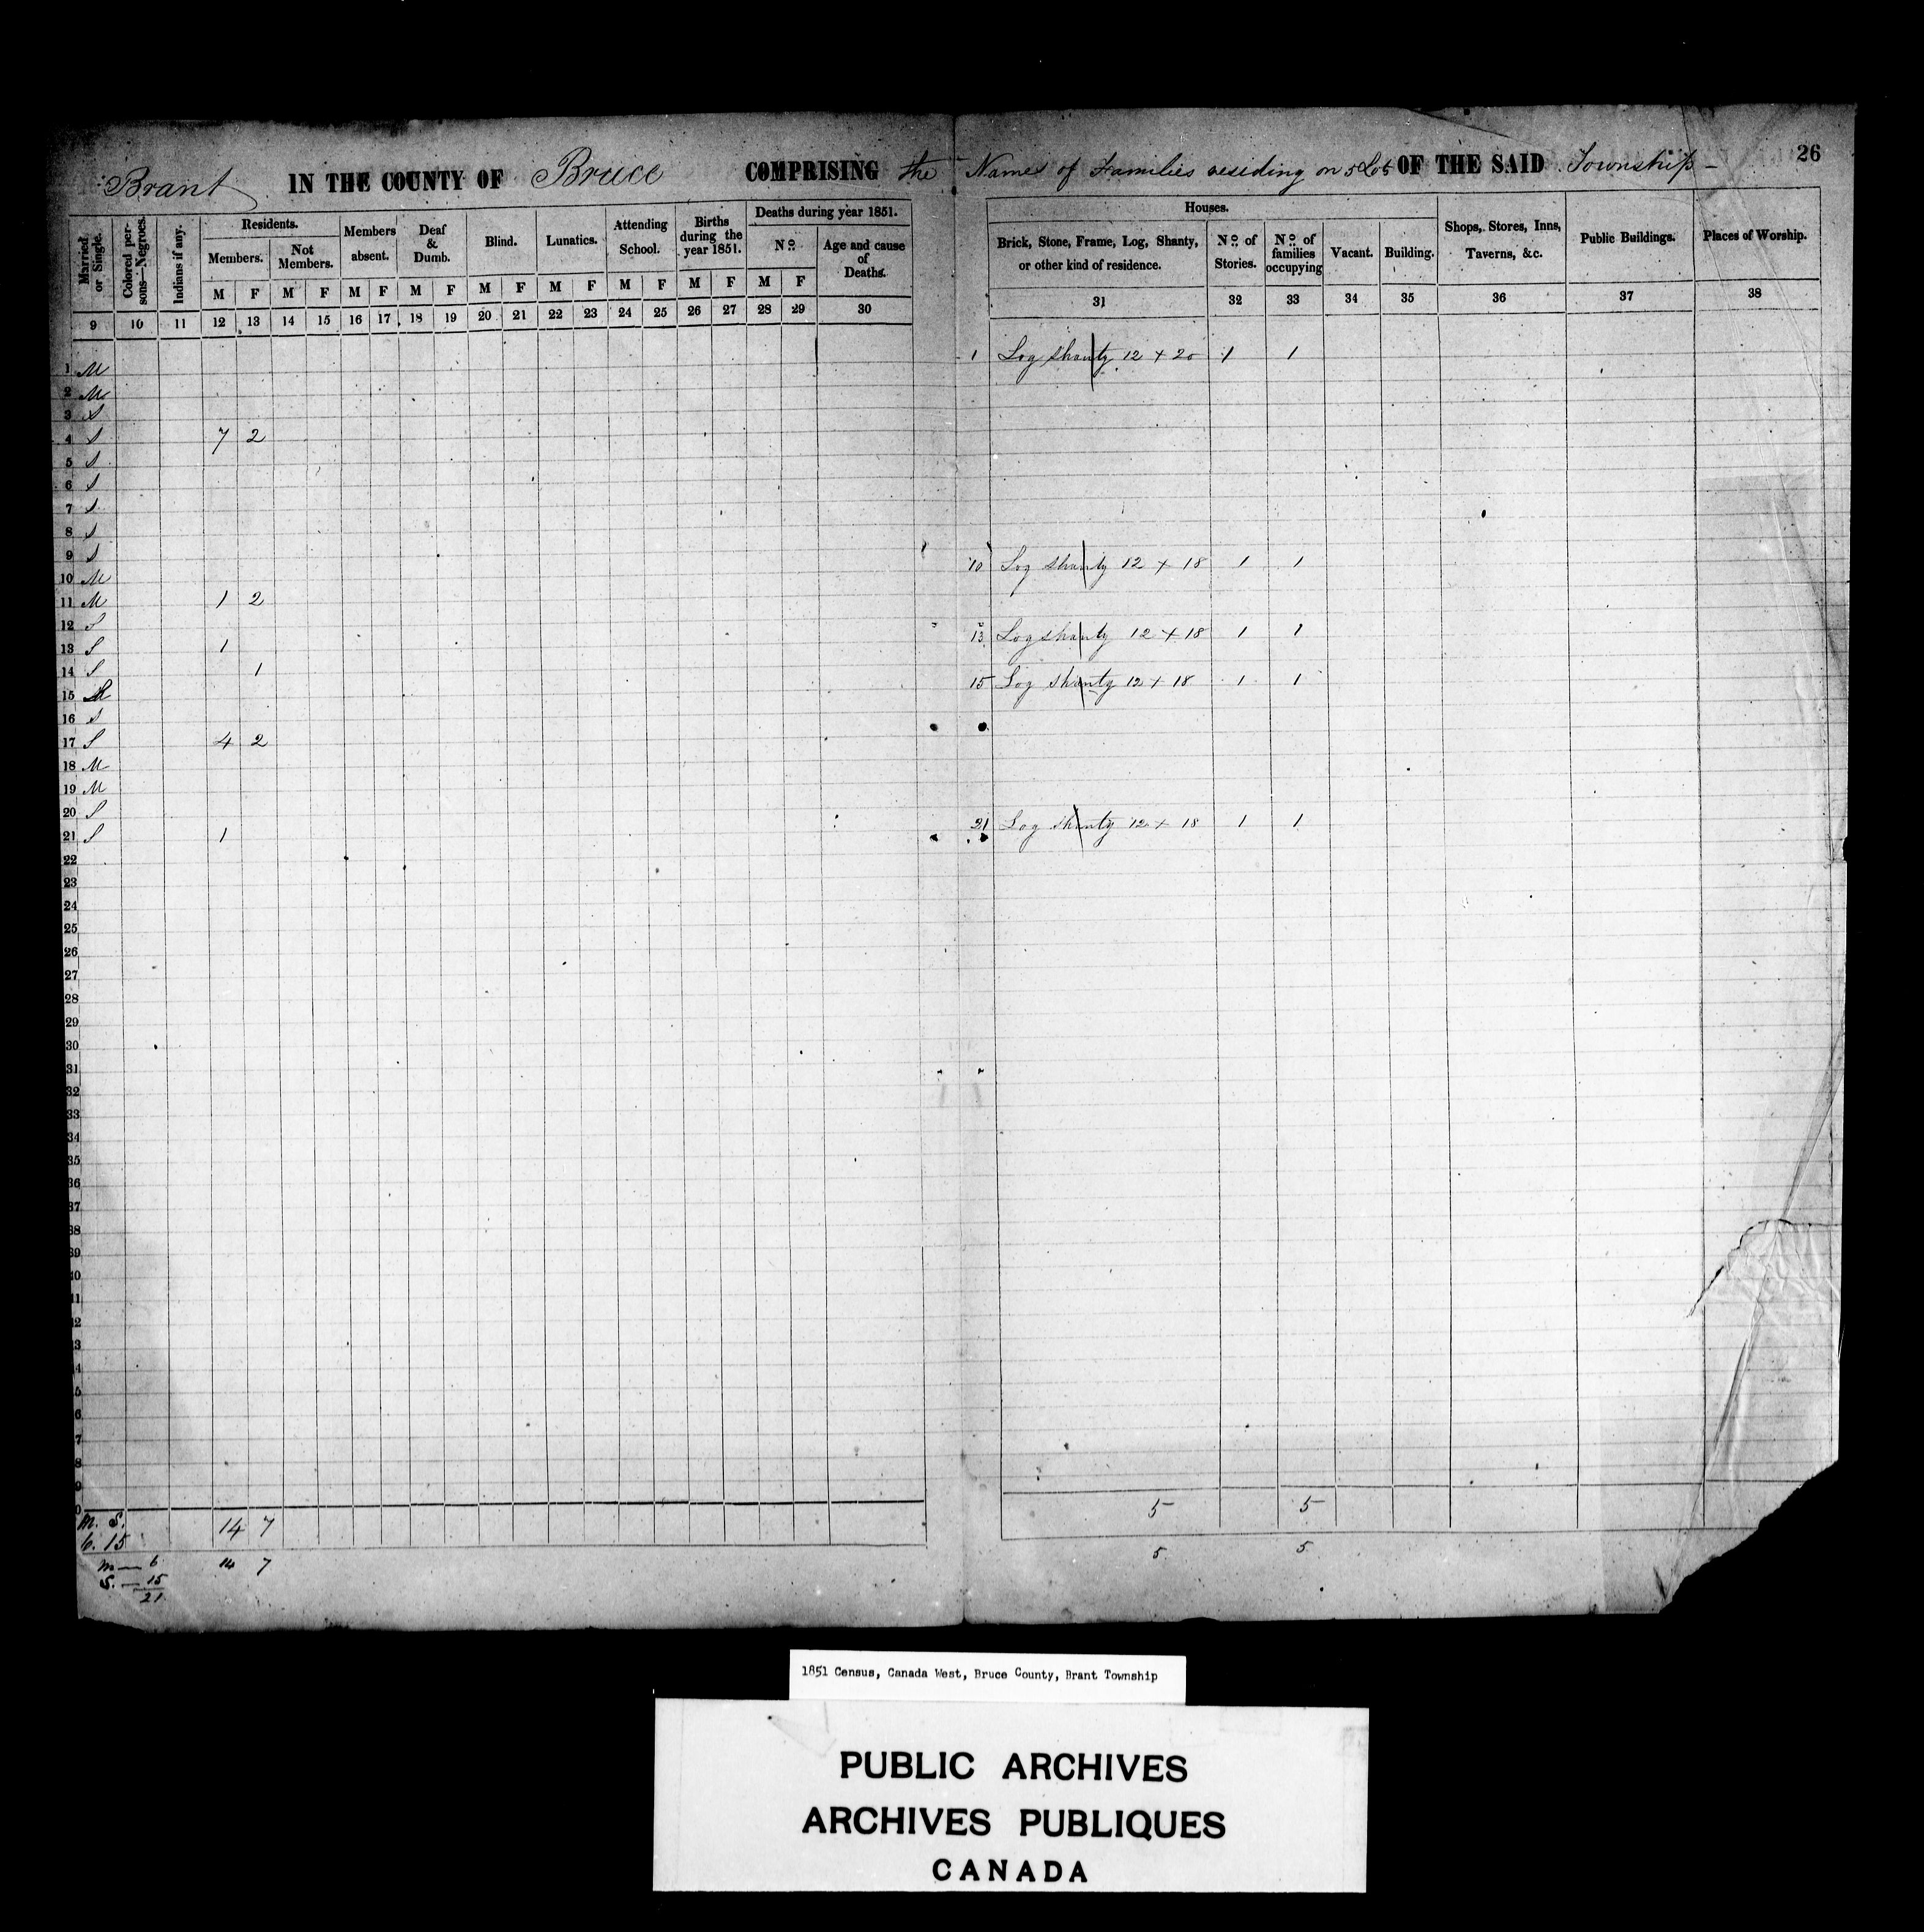 26
Brant IN THE COUNTY OF Bruce COMPRISING the Names of Families residing on 5 Lots OF THE SAID Township -
Married or Single. Colored persons—Negroes. Indians if any. Residents. Members absent. Deaf & Dumb. Blind. Lunatics. Attending School. Births during the year 1851. Deaths during year 1851. Houses. Shops, Stores, Inns, Taverns, &c. Public Buildings. Places of Worship.
Members. Not Members. No. Age and cause of Deaths. Brick, Stone, Frame, Log, Shanty, or other kind of residence. No. of Stories. No. of families occupying Vacant. Building.
M F M F M F M F M F M F M F M F M F
9 10 11 12 13 14 15 16 17 18 19 20 21 22 23 24 25 26 27 28 29 30 31 32 33 34 35 36 37 38
1 M 1 Log shanty 12 + 20 1 1
2 M
3 S
4 S 7 2
5 S
6 S
7 S
8 S
9 S
10 M 10 Log shanty 12 + 18 1 1
11 M 1 2
12 S
13 S 1 13 Log shanty 12 + 18 1 1
14 S 1
15 M 15 Log shanty 12 + 18 1 1
16 S
17 S 4 2
18 M
19 M
20 S
21 S 1 21 Log shanty 12 + 18 1 1
22
23
24
25
26
27
28
29
30
31
32
33
34
35
36
37
38
39
40
11
12
13
14
5
6
7
8
9
0
M. S. 14 7 5 5
6. 15
M — 6 14 7 5 5
S. — 15
21
1851 Census, Canada West, Bruce County, Brant Township
PUBLIC ARCHIVES
ARCHIVES PUBLIQUES
CANADA